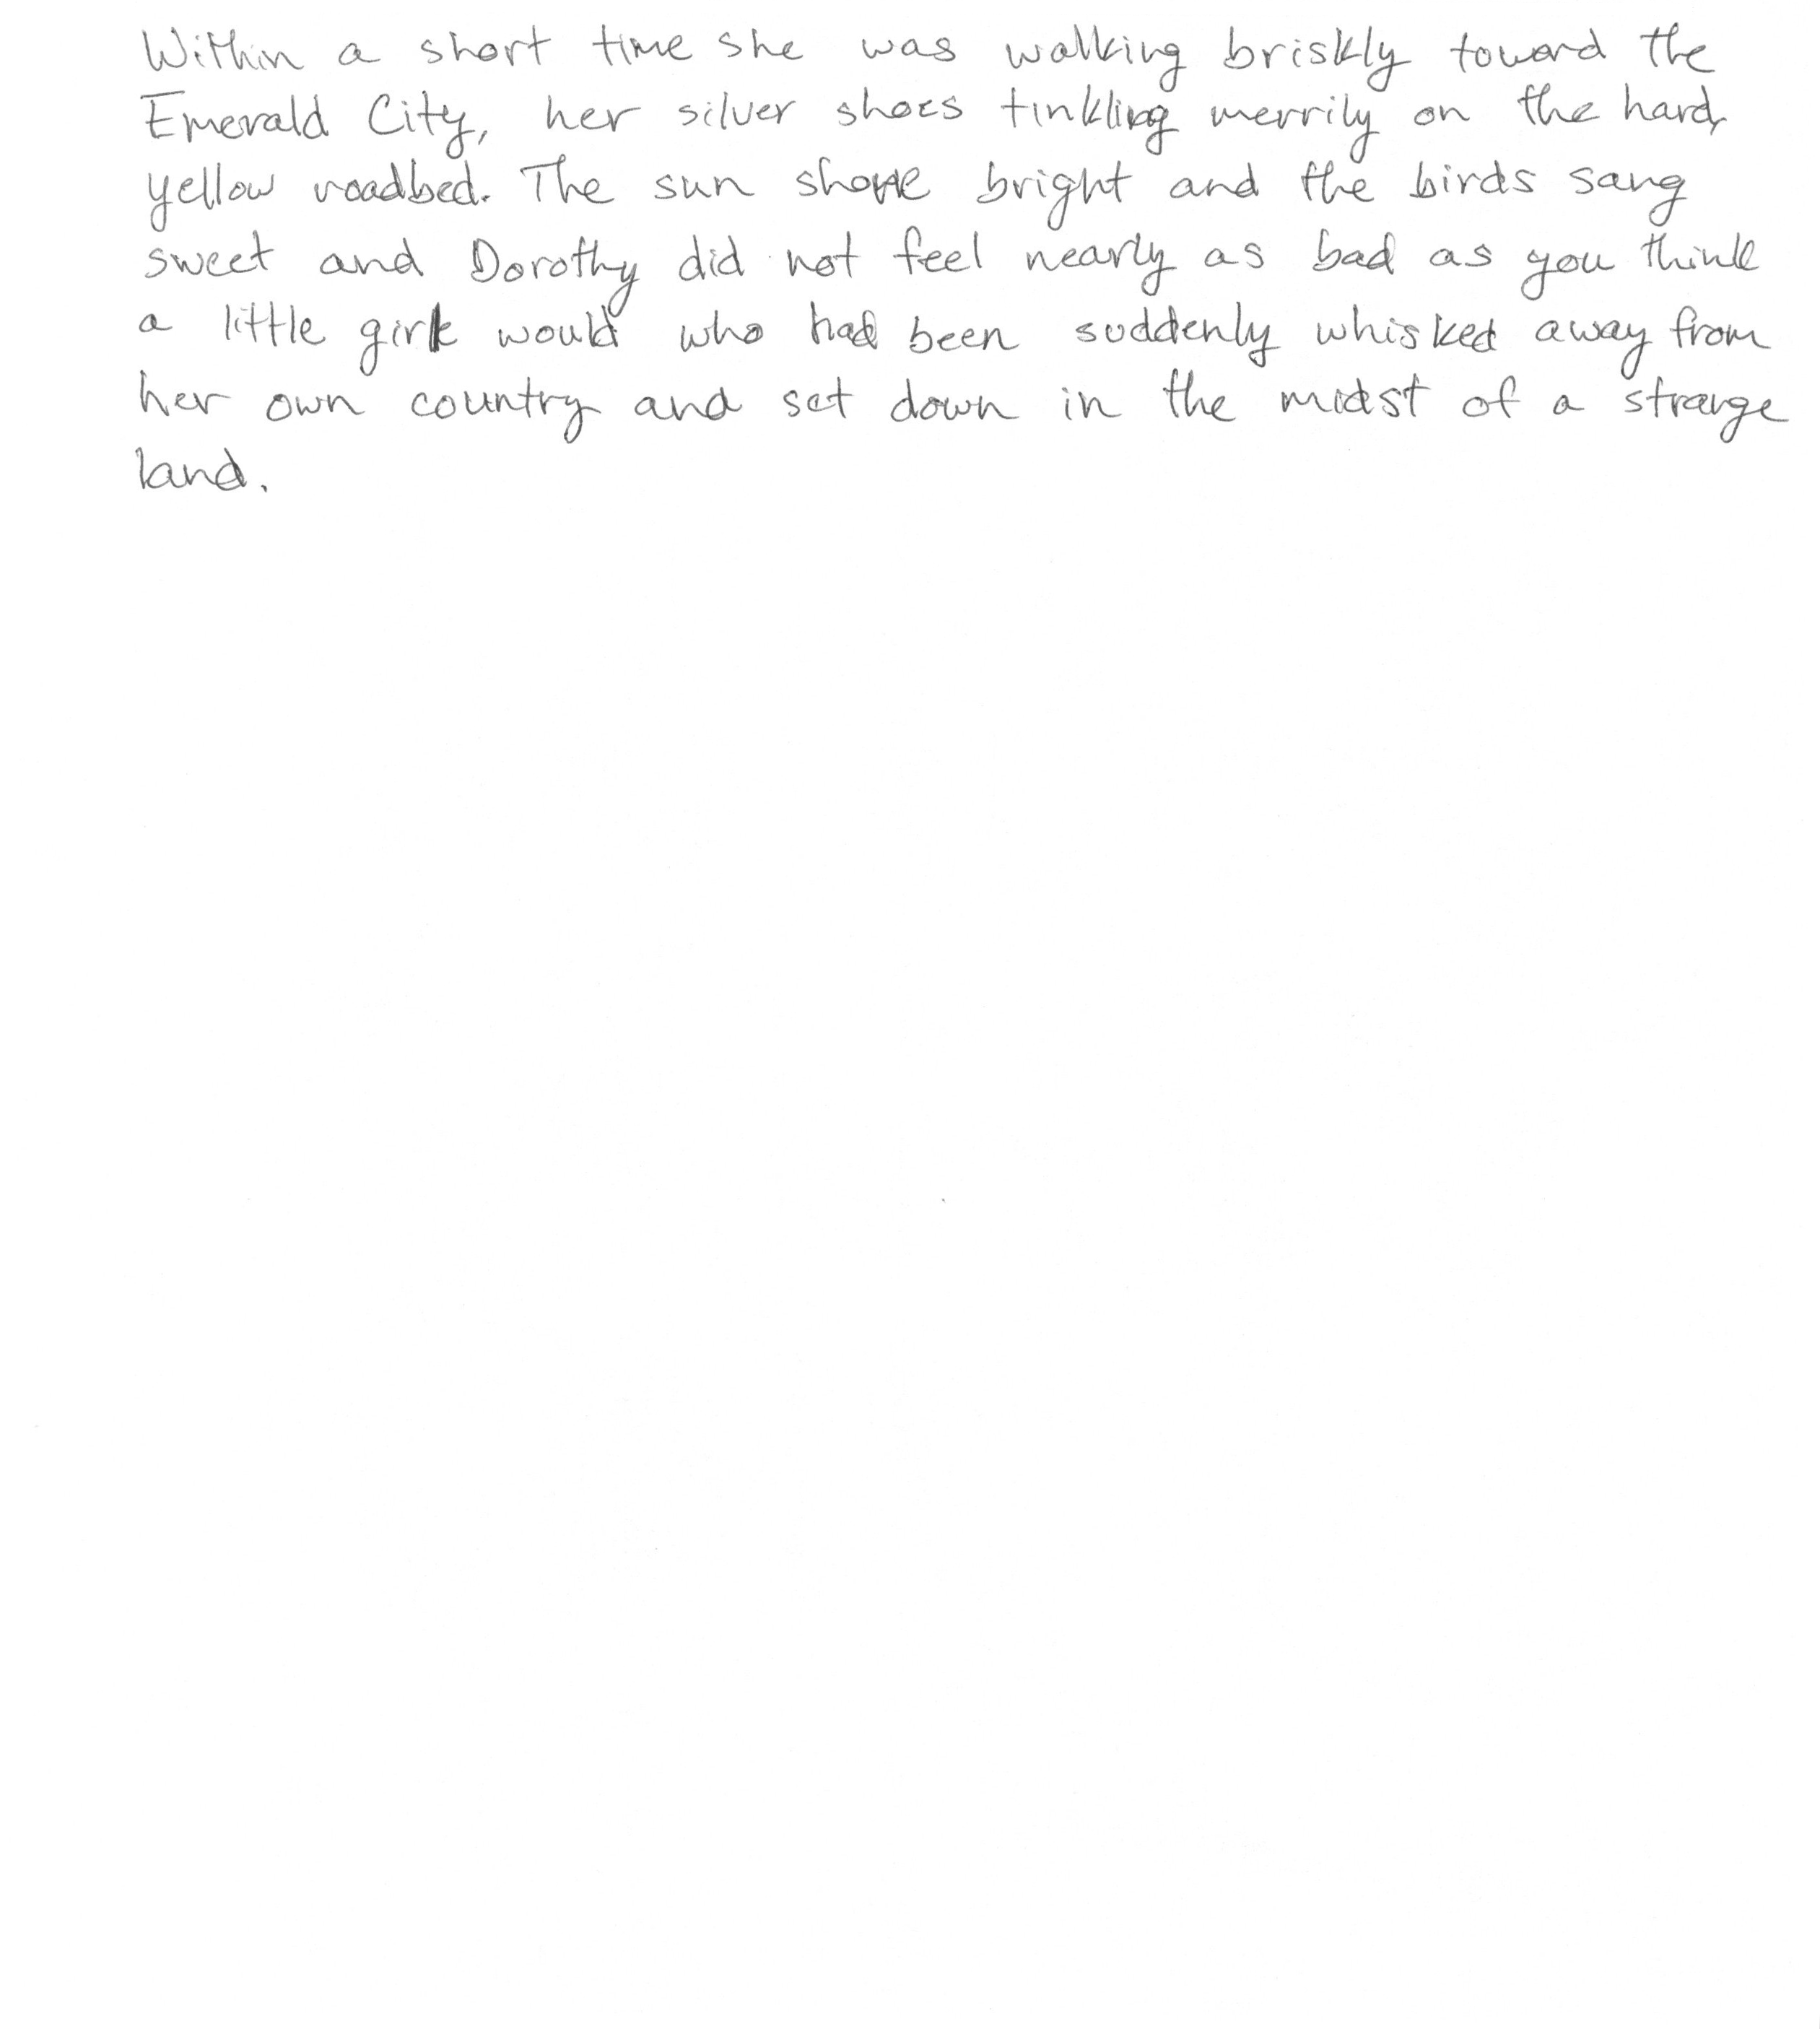 Within a short time she was walking briskly toward the
Emerald City, her silver shoes tinkling merrily on the hard,
yellow roadbed. The sun shone bright and the birds sang
sweet and Dorothy did not feel nearly as bad as you think
a little girl would who had been suddenly whisked away from
her own country and set down in the midst of a strange
land.